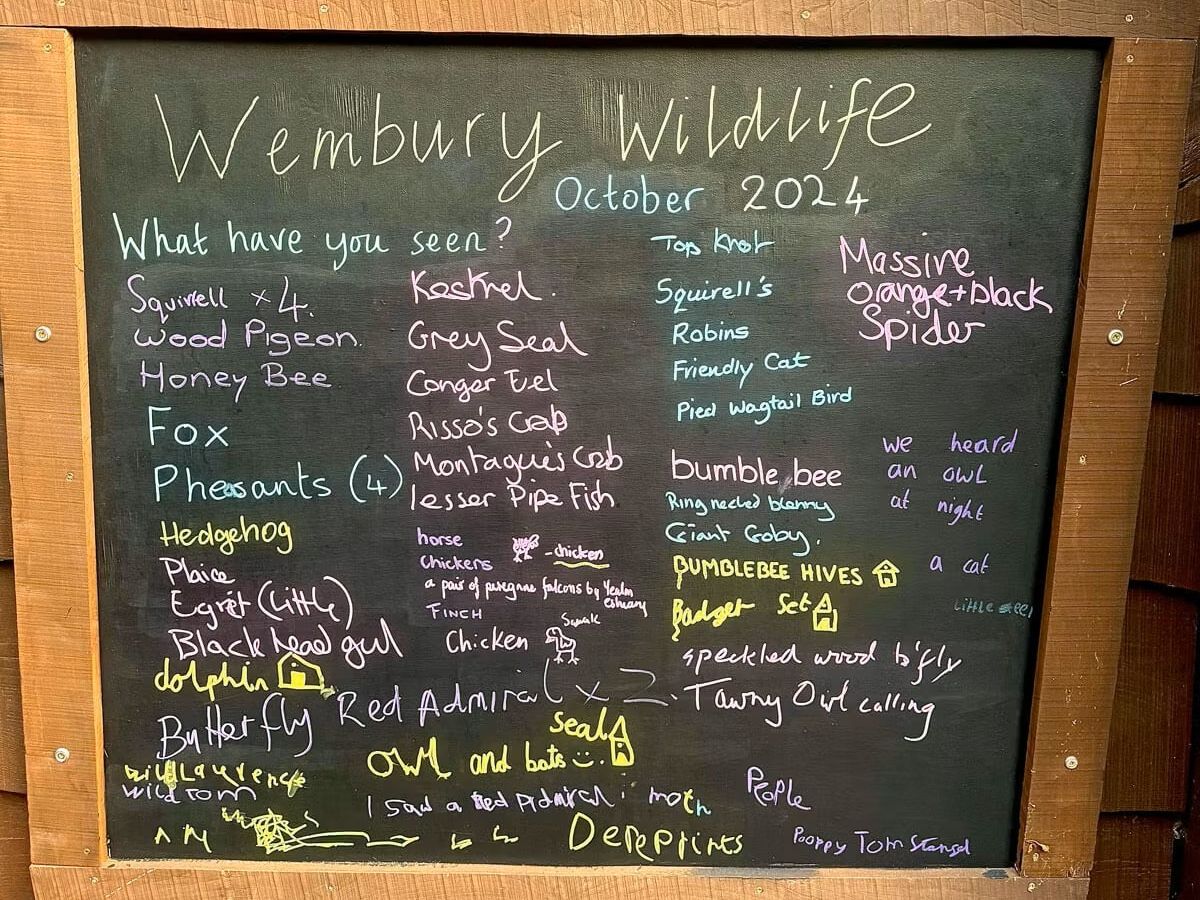 Wembury Wildlife
October 2024
What have you seen?
Squirrell x 4.
Wood Pigeon.
Honey Bee
Fox
Pheasants (4)
Hedgehog
Plaice
Egret (Little)
Black head gull
dolphin
Butterfly Red Admiral x 2.
Kestrel.
Grey Seal
Conger Eel
Risso's Crab
Montague's Crab
lesser Pipe Fish
horse
Chickens
- chicken
a pair of peregrine falcons by Yealm
estuary
FINCH
Squak
Chicken
Top Knot
Squirell's
Robins
Friendly Cat
Pied Wagtail Bird
bumble bee
Ring necked blenny
Giant Goby.
BUMBLEBEE HIVES
Badger Set
speckled wood b'fly
Tawny Owl calling
Massive
orange+black
Spider
we heard
an owl
at night
a cat
Little
seal
Owl and bats
wild Laurence
wild Tom
I saw a Red Admiral moth
People
Tom